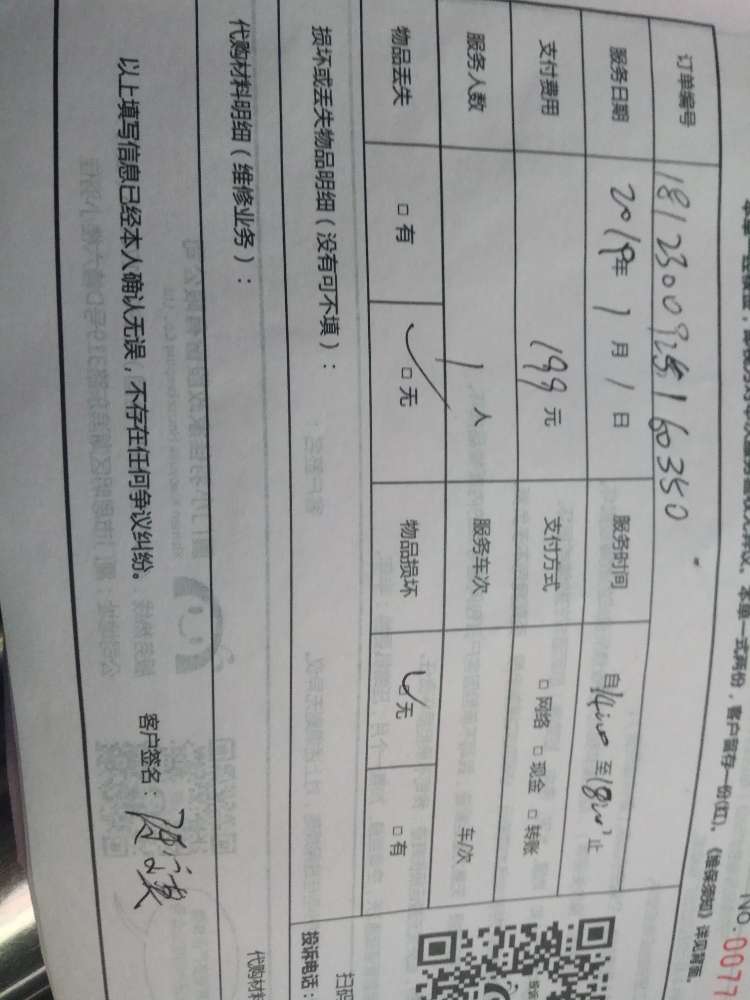 本单一式两份，客户留存一份(红)。《维保须知》详见背面。
NO.0077
订单编号 1812300925160350
服务日期 2019年 1月 1日 服务时间 自14:00 至18:00 止
支付费用 199元 支付方式 □网络 □现金 □转账
服务人数 1人 服务车次 车/次
物品丢失 □有 □无 物品损坏 □无 □有
损坏或丢失物品明细（没有可不填）：
代购材料明细（维修业务）：
以上填写信息已经本人确认无误，不存在任何争议纠纷。
客户签名：
扫码
投诉电话：
代购材料